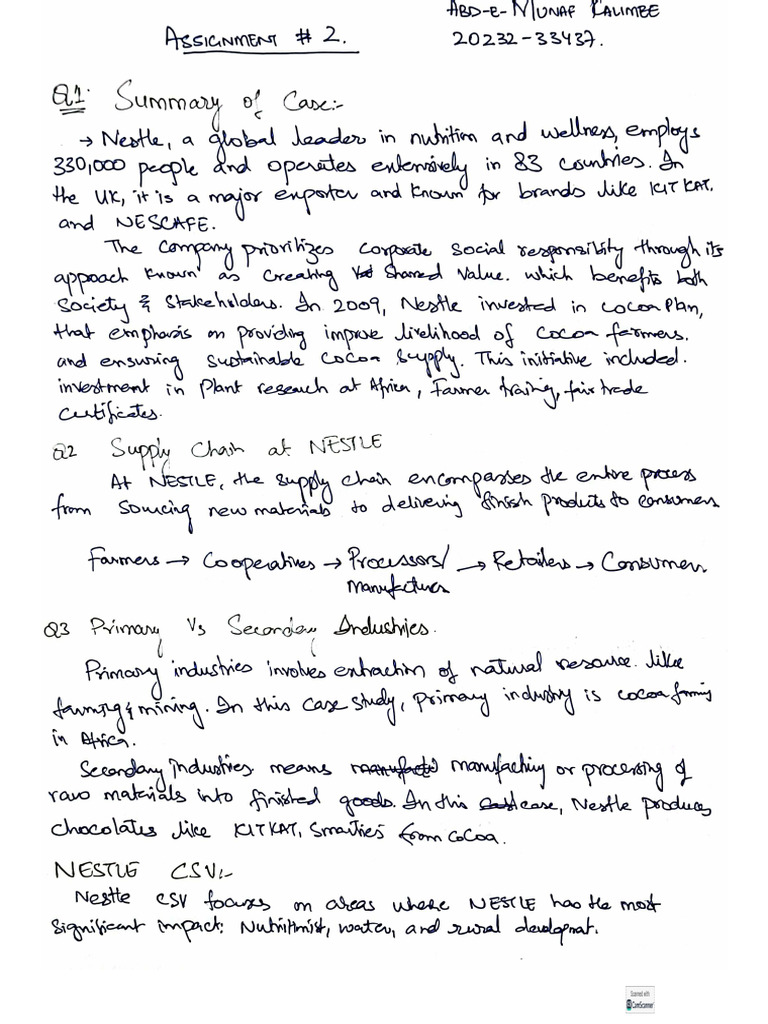 ABD-E-MUNAF KALIMBE
ASSIGNMENT # 2.
20232-33437.
Q1: Summary of Case:-
→ Nestle, a global leader in nutrition and wellness, employs
330,000 people and operates extensively in 83 countries. In
the UK, it is a major exporter and known for brands like KITKAT.
and NESCAFE.
The Company prioritizes corporate social responsibility through its
approach known as Creating Shared Value. which benefits both
Society & Stakeholders. In 2009, Nestle invested in cocoa Plan,
that emphasis on providing improve livelihood of cocoa farmers.
and ensuring sustainable cocoa supply. This initiative included.
investment in Plant research at Africa, Farmer traing, fair trade
Certificates.
Q2 Supply Chain at NESTLE
At NESTLE, the supply chain encompasses the entire process
from sourcing new materials to delivering finish products to consumers
Farmers → Cooperatives → Processors/ → Retailers → Consumers
Manufacturers
Q3 Primary Vs Secondary Industries.
Primary industries involves extraction of natural resource. like
farming & mining. In this case study, primary industry is cocoa farming
in Africa.
Secondary industries means manufacting or processing of
raw materials into finished goods. In this case, Nestle produces
chocolates like KITKAT, Smarties from Cocoa.
NESTLE CSV:-
Nestle CSV focuses on areas where NESTLE has the most
significant impact: Nutritinist, water, and rural developmat.
Scanned with
CamScanner